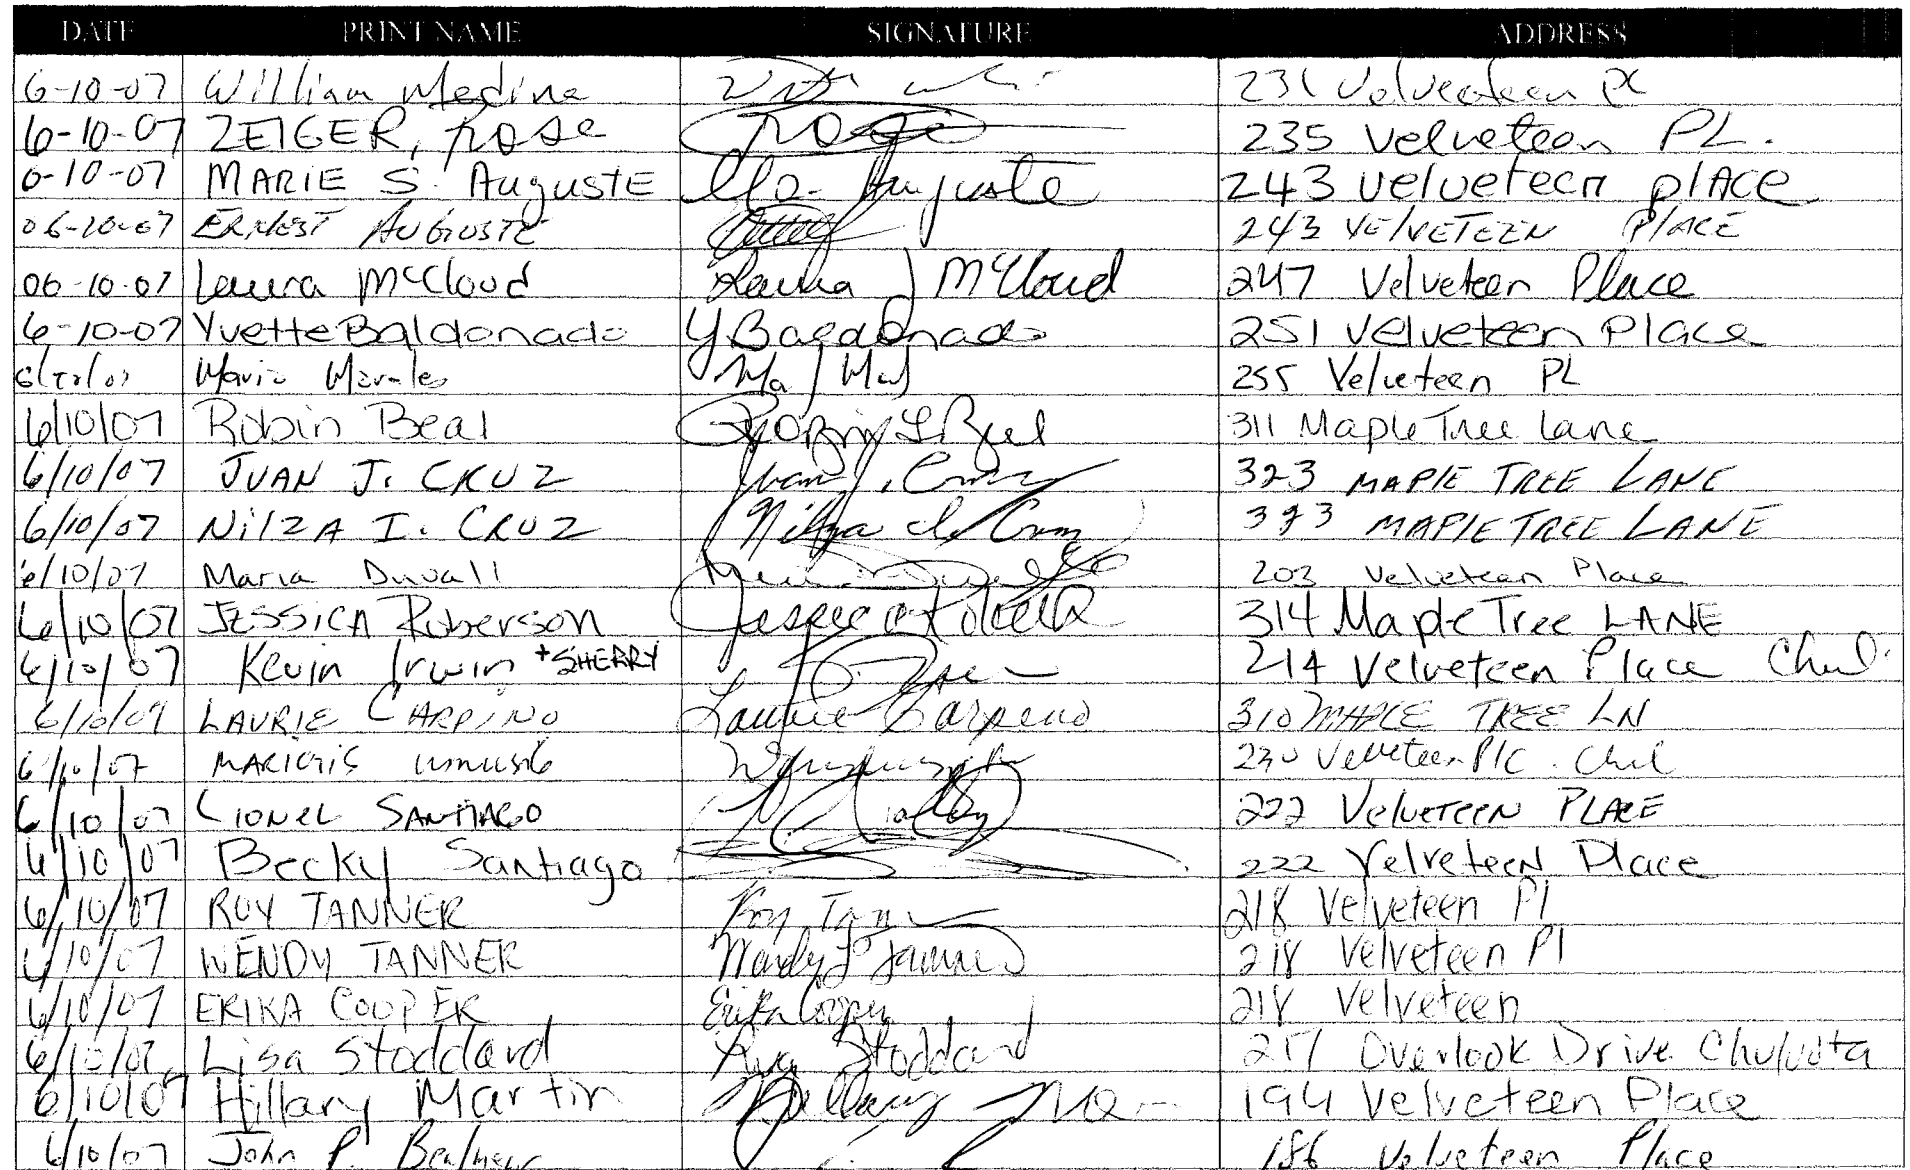 DATE PRINT NAME SIGNATURE ADDRESS
6-10-07 William Medina 231 Velveteen Pl
6-10-07 ZEIGER, rose rose 235 Velveteen PL.
6-10-07 MARIE S. AugustE Ma. Auguste 243 velveteen plACE
06-10-07 ERNEST AUGUSTE 243 VElVETEEN PlACE
06-10-07 Laura McCloud Laura J McCloud 247 Velveteen Place
6-10-07 Yvette Baldonado Y Baldonado 251 Velveteen Place
6/10/07 Mario Morales 255 Velveteen PL
6/10/07 Robin Beal Robin L Beal 311 Maple Tree Lane
6/10/07 JUAN J. CRUZ Juan J. Cruz 323 MAPlE TREE LANE
6/10/07 NilZA I. CRUZ Nilza I. Cruz 323 MAPlE TREE LANE
6/10/07 Maria Duvall 203 Velveteen Place
6/10/07 JESSICA Roberson Jessica 314 Maple Tree LANE
6/10/07 Kevin Irwin + SHERRY 214 Velveteen Place Chul.
6/10/07 LAURIE CARPINO Laurie Carpino 310 MAPLE TREE LN
6/10/07 230 Velveteen Plc. Chul
6/10/07 LIONEL SANTIAGO 222 VelveTEEN PLACE
6/10/07 Becky Santiago 222 VelveteeN Place
6/10/07 ROY TANNER Roy 218 Velveteen Pl
6/10/07 WENDY TANNER Wendy Tanner 218 Velveteen Pl
6/10/07 ERIKA COOPER Erika Cooper 218 Velveteen
6/10/07 Lisa Stoddard Stoddard Overlook Drive Chuluota
6/10/07 Hillary Martin Hillary 194 Velveteen Place
6/10/07 John P. 186 Velveteen Place